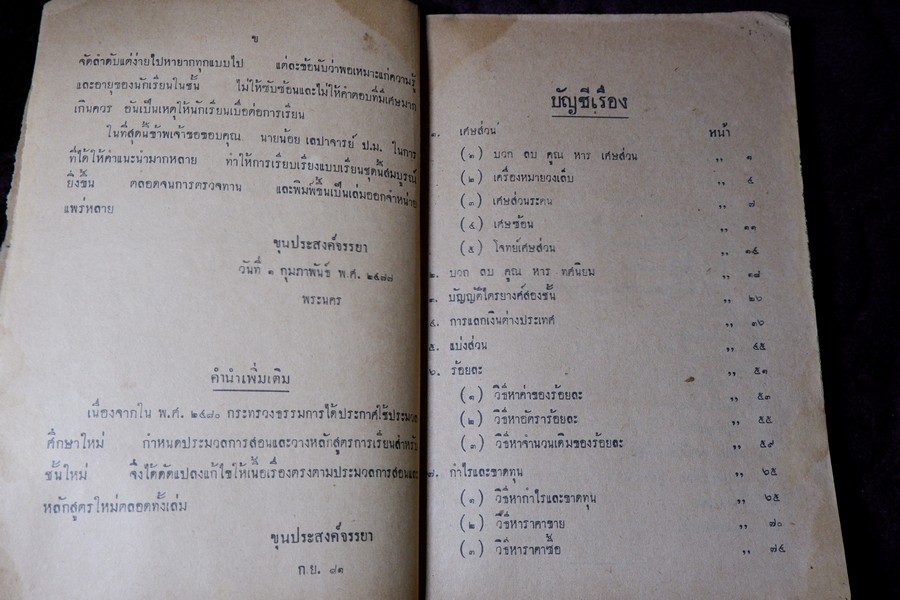 ข
จัดลำดับแต่ง่ายไปหายากทุกแบบไป แต่ละข้อนับว่าพอเหมาะแก่ความรู้
และอายุของนักเรียนในชั้น ไม่ให้ซับซ้อนและไม่ให้คำตอบที่มีเศษมาก
เกินควร อันเป็นเหตุให้นักเรียนเบื่อต่อการเรียน
ในที่สุดนี้ข้าพเจ้าขอขอบคุณ นายน้อย เลปาจารย์ ป.ม. ในการ
ที่ได้ให้คำแนะนำมากหลาย ทำให้การเรียบเรียงแบบเรียนชุดนี้สมบูรณ์
ยิ่งขึ้น ตลอดจนการตรวจทาน และพิมพ์ขึ้นเป็นเล่มออกจำหน่าย
แพร่หลาย
ขุนประสงค์จรรยา
วันที่ ๑ กุมภาพันธ์ พ.ศ. ๒๔๗๗
พระนคร
คำนำเพิ่มเติม
เนื่องจากใน พ.ศ. ๒๔๘๐ กระทรวงธรรมการได้ประกาศใช้ประมวล
ศึกษาใหม่ กำหนดประมวลการสอนและวางหลักสูตรการเรียนสำหรับ
ชั้นใหม่ จึ่งได้ดัดแปลงแก้ไขให้เนื้อเรื่องตรงตามประมวลการสอนและ
หลักสูตรใหม่ตลอดทั้งเล่ม
ขุนประสงค์จรรยา
ก.ย. ๘๑
บัญชีเรื่อง
๑. เศษส่วน หน้า
(๑) บวก ลบ คูณ หาร เศษส่วน ,, ๑
(๒) เครื่องหมายวงเล็บ ,, ๔
(๓) เศษส่วนระคน ,, ๗
(๔) เศษซ้อน ,, ๑๑
(๕) โจทย์เศษส่วน ,, ๑๔
๒. บวก ลบ คูณ หาร ทศนิยม ,, ๑๗
๓. บัญญัติไตรยางค์สองชั้น ,, ๒๖
๔. การแลกเงินต่างประเทศ ,, ๓๖
๕. แบ่งส่วน ,, ๔๕
๖. ร้อยละ ,, ๕๑
(๑) วิธีหาค่าของร้อยละ ,, ๕๓
(๒) วิธีหาอัตราร้อยละ ,, ๕๕
(๓) วิธีหาจำนวนเดิมของร้อยละ ,, ๕๙
๗. กำไรและขาดทุน ,, ๖๕
(๑) วิธีหากำไรและขาดทุน ,, ๖๕
(๒) วิธีหาราคาขาย ,, ๗๐
(๓) วิธีหาราคาซื้อ ,, ๗๔